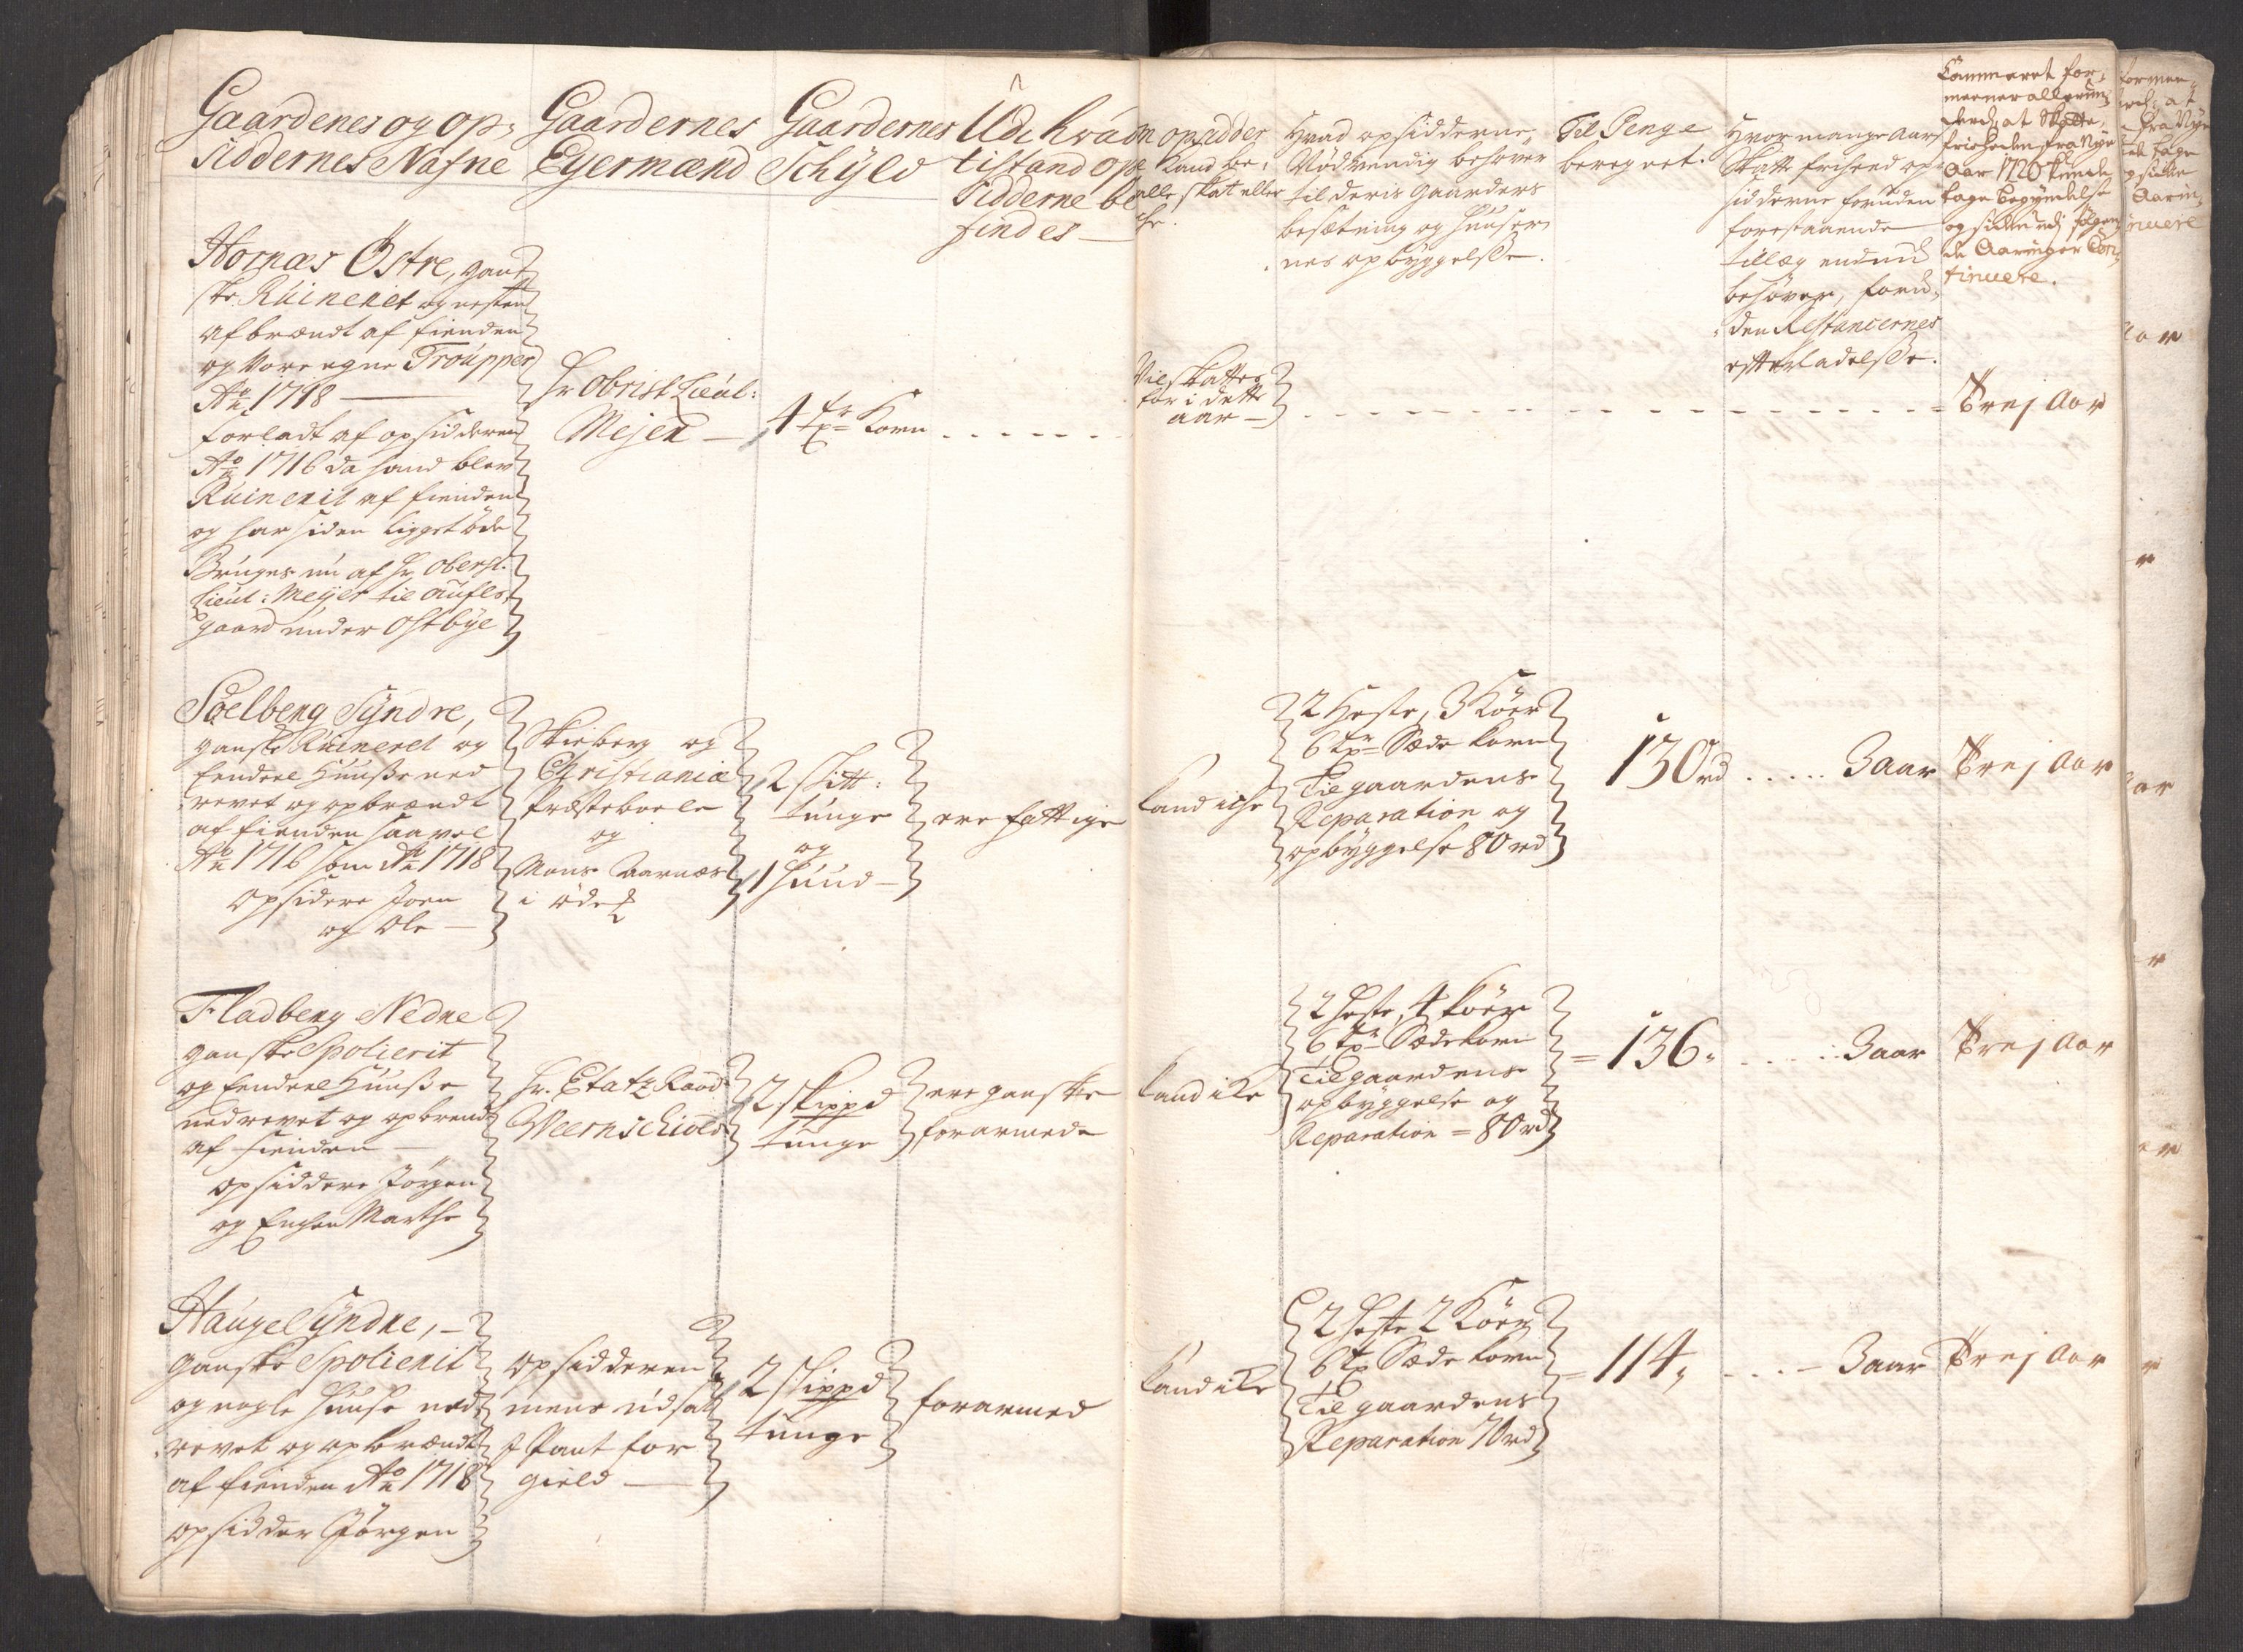 Gaardenes og op-
siddernes Nafne
Gaardernes
Eyermænd
Gaardernes
Schÿld
Udi hvad
tilstand op-
sidderne be
findes
om opsidder
Kand be-
talle skat eller
iche.
Hvad opsidderne
Nødvendig behøver
til deris gaarders
besætning og huuser
nes opbyggelsse.
Til Penge
beregnet.
Hvor mange aars
Skatte frihed op-
sidderne foruden
forestaaende
tillæg endnu
behøver, foru-
den Restancernes
efterladelsse.
Cammeret for-
meener allerun-
derd: at Skatte
friheden fra Nye
Aar 1720 kunde
tage begyndelse
og siden udj følgen
de Aaringer Con-
tinuere.
Hornæs Østre, gant
ske Ruineret og nesten
afbrændt af fienden
og vore egne Troupper
Ao 1718
forladt af opsidderen
Ao 1716 da hand blev
Ruinerit af fienden
og har siden ligget øde
Bruges nu af hr. Oberst.
Lieut: Meÿer til aufls
gaard under Ostbÿe
hr Obrist Lieut:
Mejer
4 tr Korn
Vil skattes
for i dette
aar
Trej Aar
Soelberg Sÿndre,
ganske Ruineret og
endeel huusse ned
revet og opbrændt
af fienden saavel
Ao 1716 som Ao 1718
opsidere Joen
og Ole
Skieberg og
Christiania
Præsteboele
og
Mons Aarnæs
i øde
2 Sitt:
tunge
og
1 huud
ere fattige
kand iche
2 heste, 3 Køer
6 tr Sæde korn
Til gaardens
Reparation og
opbyggelse 80 rd
130 rd
3 aar
Trej Aar
Fladberg Nedre
ganske Spolierit
og endeel huusse
nedrevet og opbrendt
af fienden
opsiddere Jørgen
og Enchen Marthe
hr. Etatz Raad
Weernschiold
2 skippd
tunge
ere ganske
forarmede
kand ike
2 heste, 4 køer
6 tr Sædekorn
Til gaardens
opbyggelse og
Reparation = 80 rd
136
3 aar
Trej Aar
Hauge Sÿndre,
ganske Spolierit
og nogle huuse ned
revet og opbrændt
af fienden Ao 1718
opsidder Jørgen
opsidderen
mens udsat
i Pant for
gield
2 skippd
tunge
forarmed
kand ike
2 heste 2 Køer
6 t Sæde korn
Til gaardens
Reparation 70 rd
114
3 aar
Trej Aar